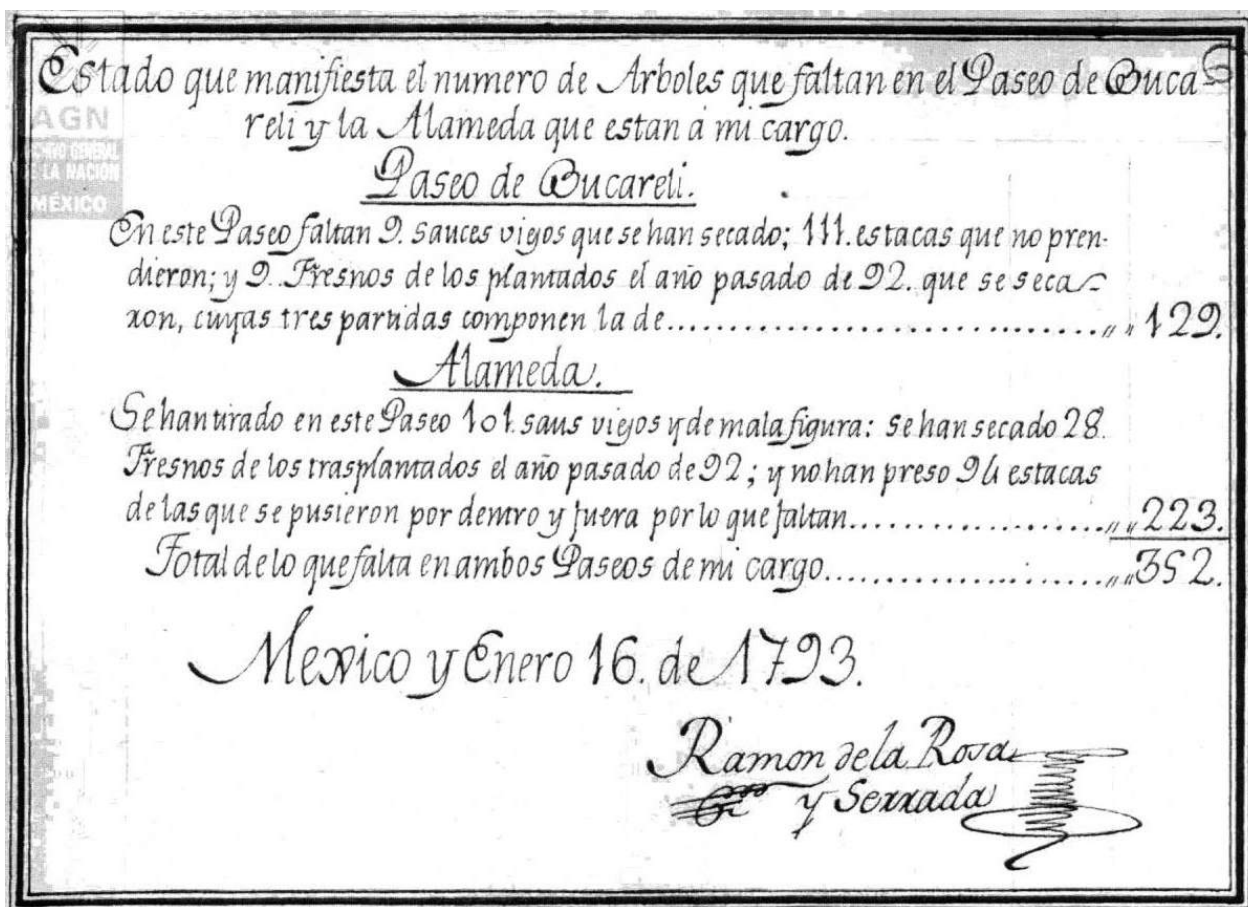 Estado que manifiesta el numero de Arboles que faltan en el Paseo de Buca
reli y la Alameda que estan á mi cargo.
AGN
ARCHIVO GENERAL
DE LA NACION
MÉXICO
Paseo de Bucareli.
En este Paseo faltan 9. sauces viejos que se han secado; 111. estacas que no pren-
dieron; y 9. Fresnos de los plantados el año pasado de 92. que se seca-
ron, cuyas tres partidas componen la de.............................. „ „ 129.
Alameda.
Se han tirado en este Paseo 101. saus viejos y de mala figura: se han secado 28.
Fresnos de los trasplantados el año pasado de 92; y no han preso 94 estacas
de las que se pusieron por dentro y fuera por lo que faltan.................... „ „ 223.
Total de lo que falta en ambos Paseos de mi cargo..................... „ „ 352.
Mexico y Enero 16. de 1793.
Ramon de la Rosa
y Serrada